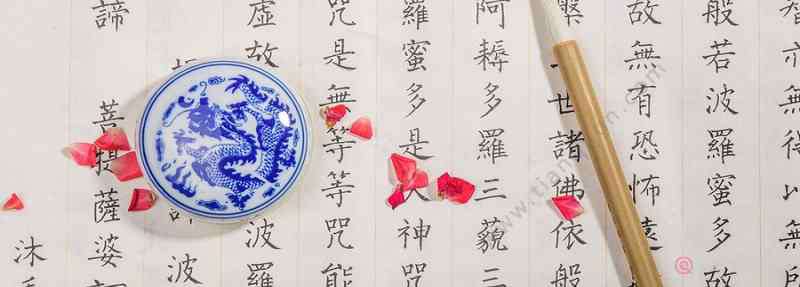 智亦無得以無所
般若波羅蜜多故
故無有恐怖遠
槃世諸佛依般
阿耨多羅三藐三
羅蜜多是大神咒
咒是無等等咒能
虛故波羅
波
諦菩提薩婆
沐